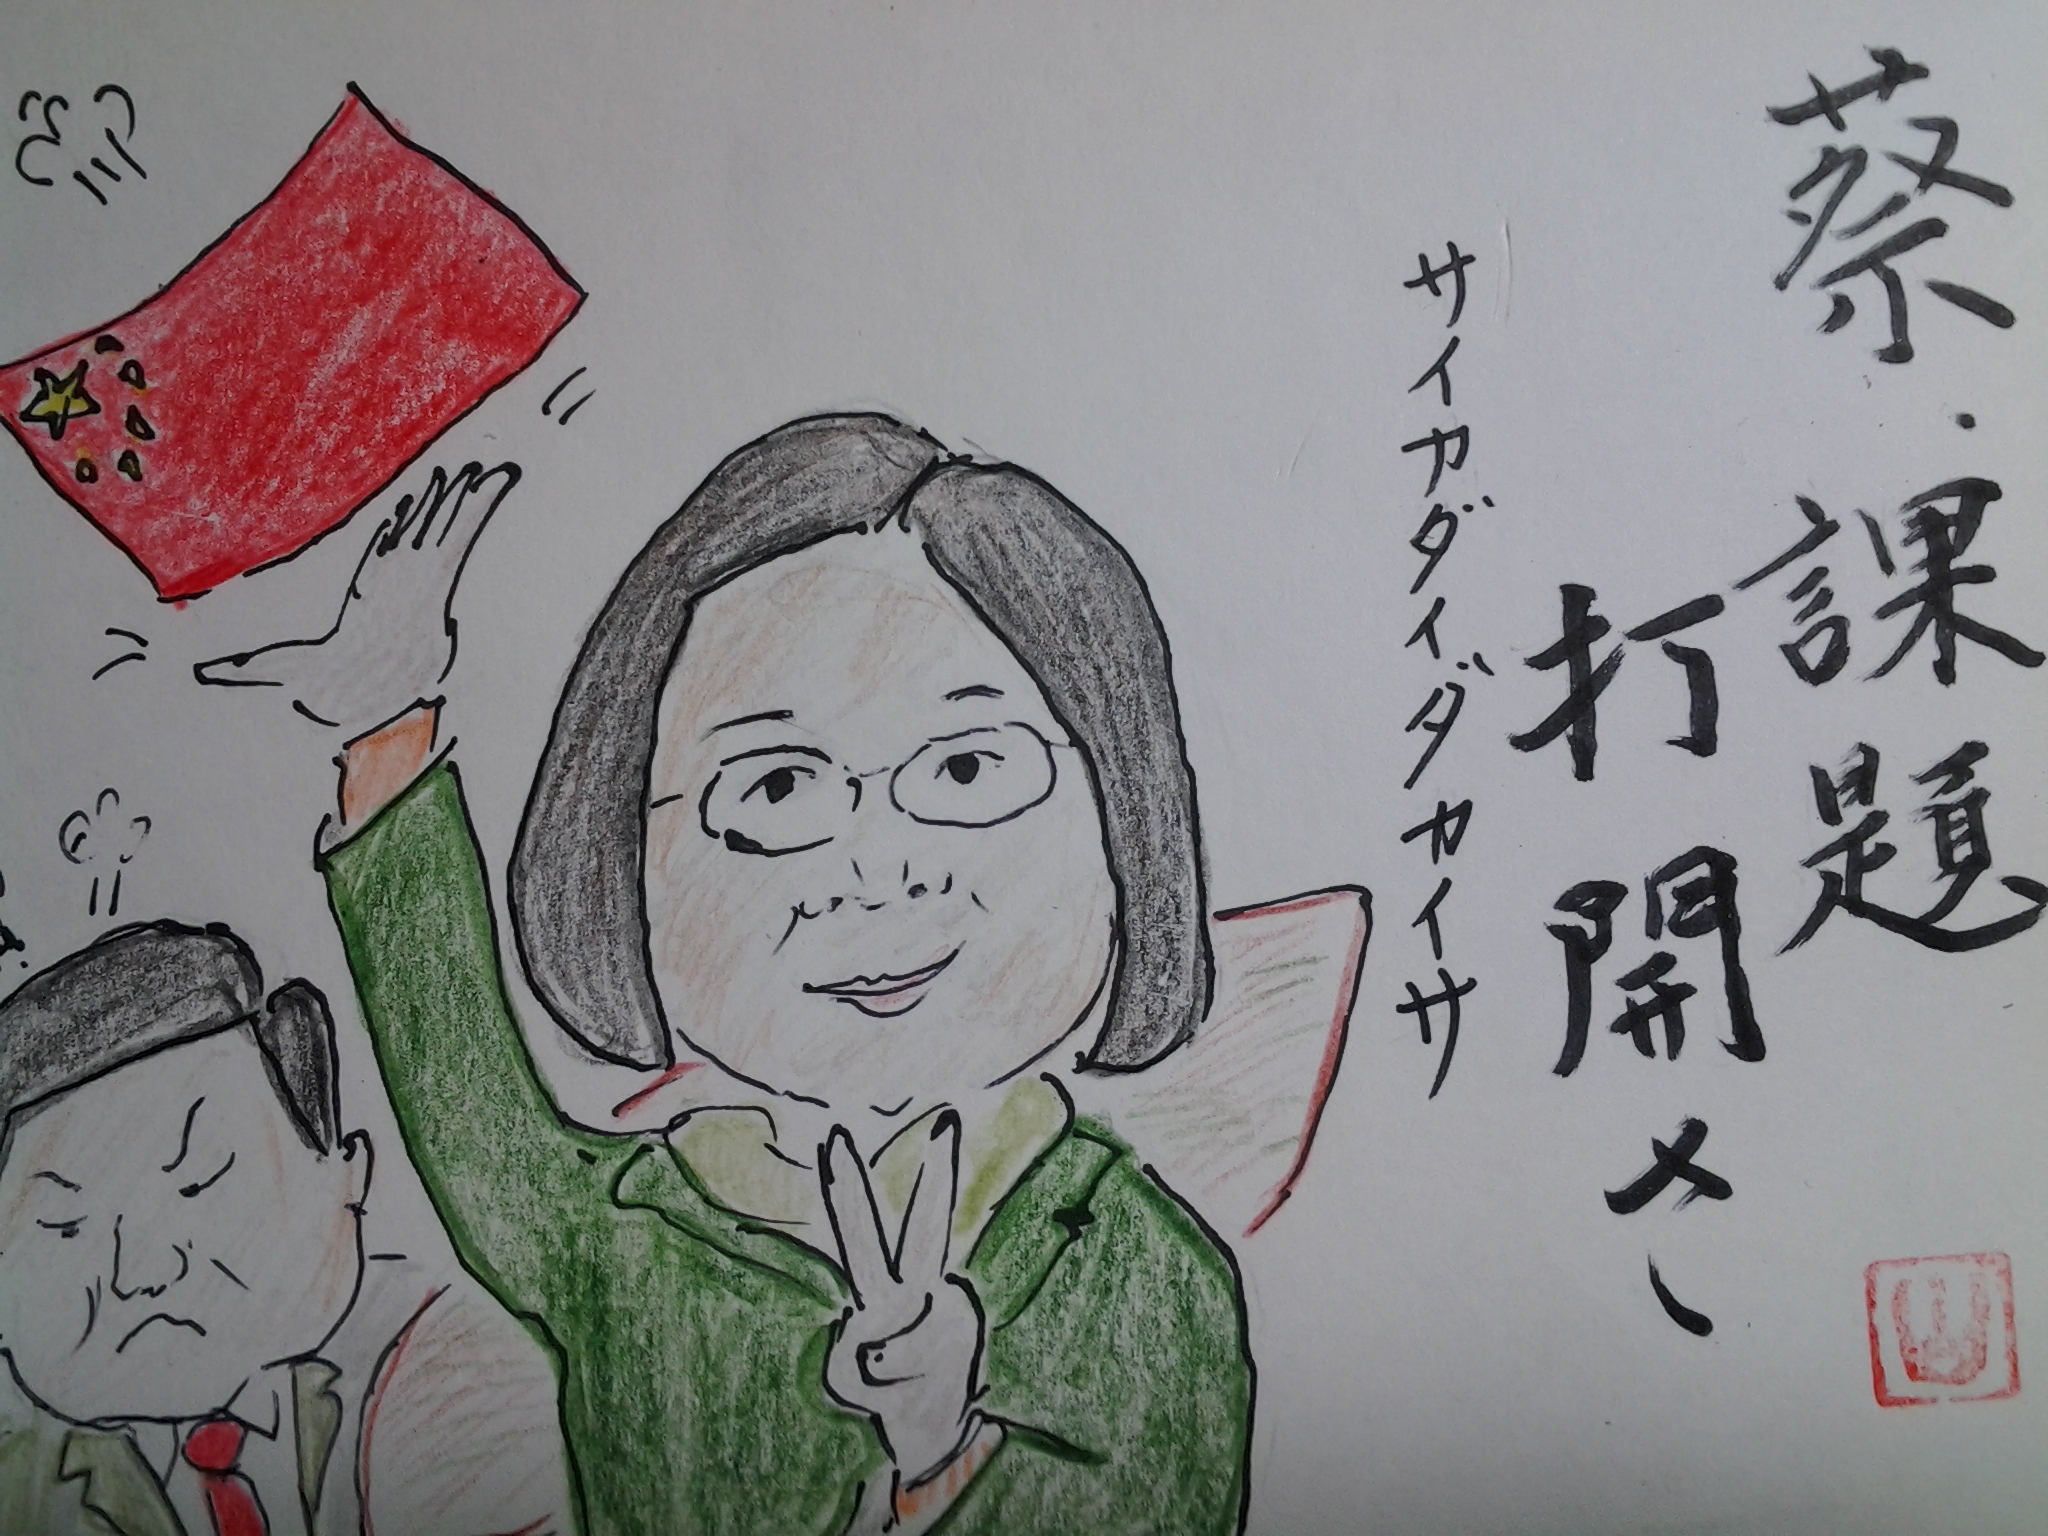 蔡・課題
打開さ、
サイカダイダカイサ